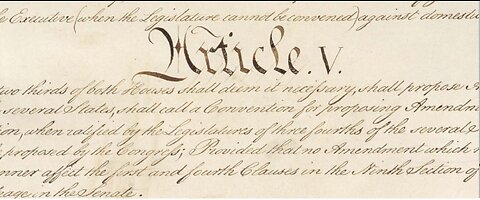 Executive (when the Legislature cannot be convened) against domestic
Article. V.
two thirds of both Houses shall deem it necessary, shall propose
several States, shall call a Convention for proposing Amendm
ion, when ratified by the Legislatures of three fourths of the several
proposed by the Congress; Provided that no Amendment which
nner affect the first and fourth Clauses in the Ninth Section of
frage in the Senate.